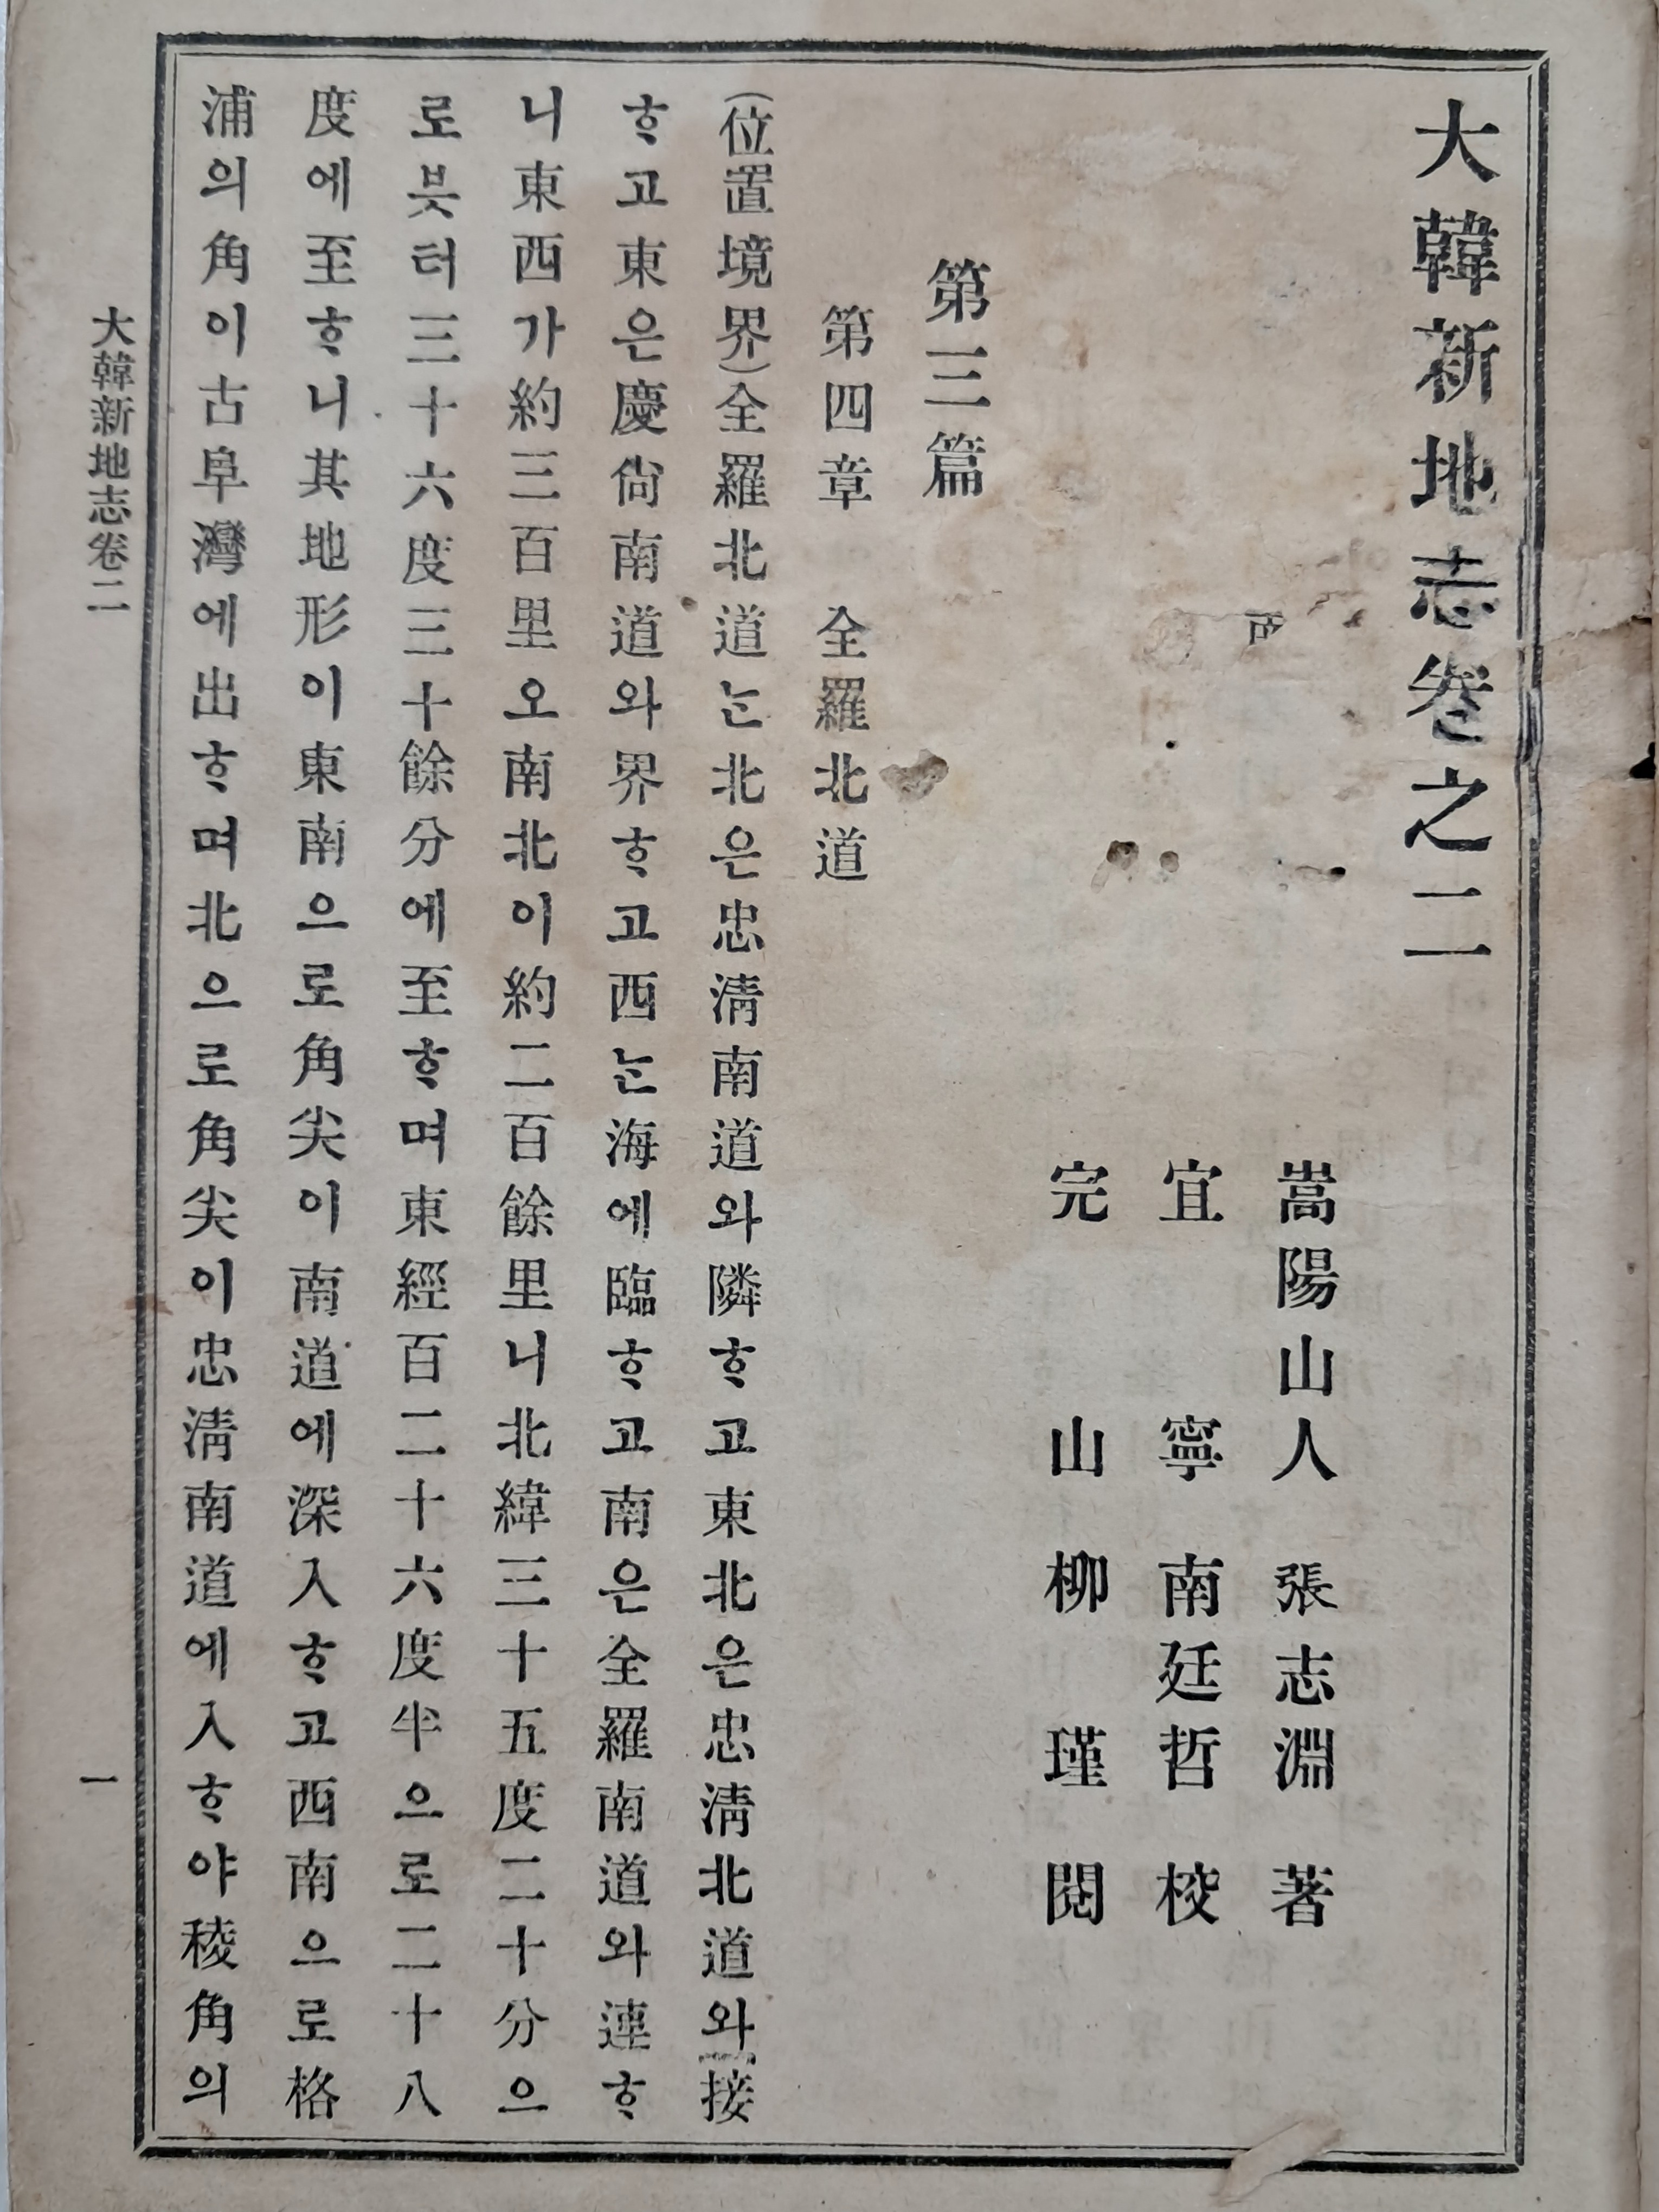 大韓新地志卷之二
嵩陽山人 張志淵 著
宜寧 南廷哲 校
完山 柳瑾 閱
第三篇
第四章 全羅北道
(位置境界)全羅北道는北은忠淸南道와隣ᄒᆞ고東北은忠淸北道와接
ᄒᆞ고東은慶尙南道와界ᄒᆞ고西는海에臨ᄒᆞ고南은全羅南道와連ᄒᆞ
니東西가約三百里오南北이約二百餘里니北緯三十五度二十分으
로븟터三十六度三十餘分에至ᄒᆞ며東經百二十六度半으로二十八
度에至ᄒᆞ니其地形이東南으로角尖이南道에深入ᄒᆞ고西南으로格
浦의角이古阜灣에出ᄒᆞ며北으로角尖이忠淸南道에入ᄒᆞ야稜角의
大韓新地志卷二
一